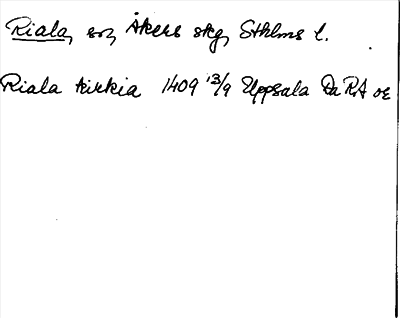 Riala, sn, Åkers skg, Sthlms l.
Riala kirkia 1409 13/9 Uppsala DaRA oe